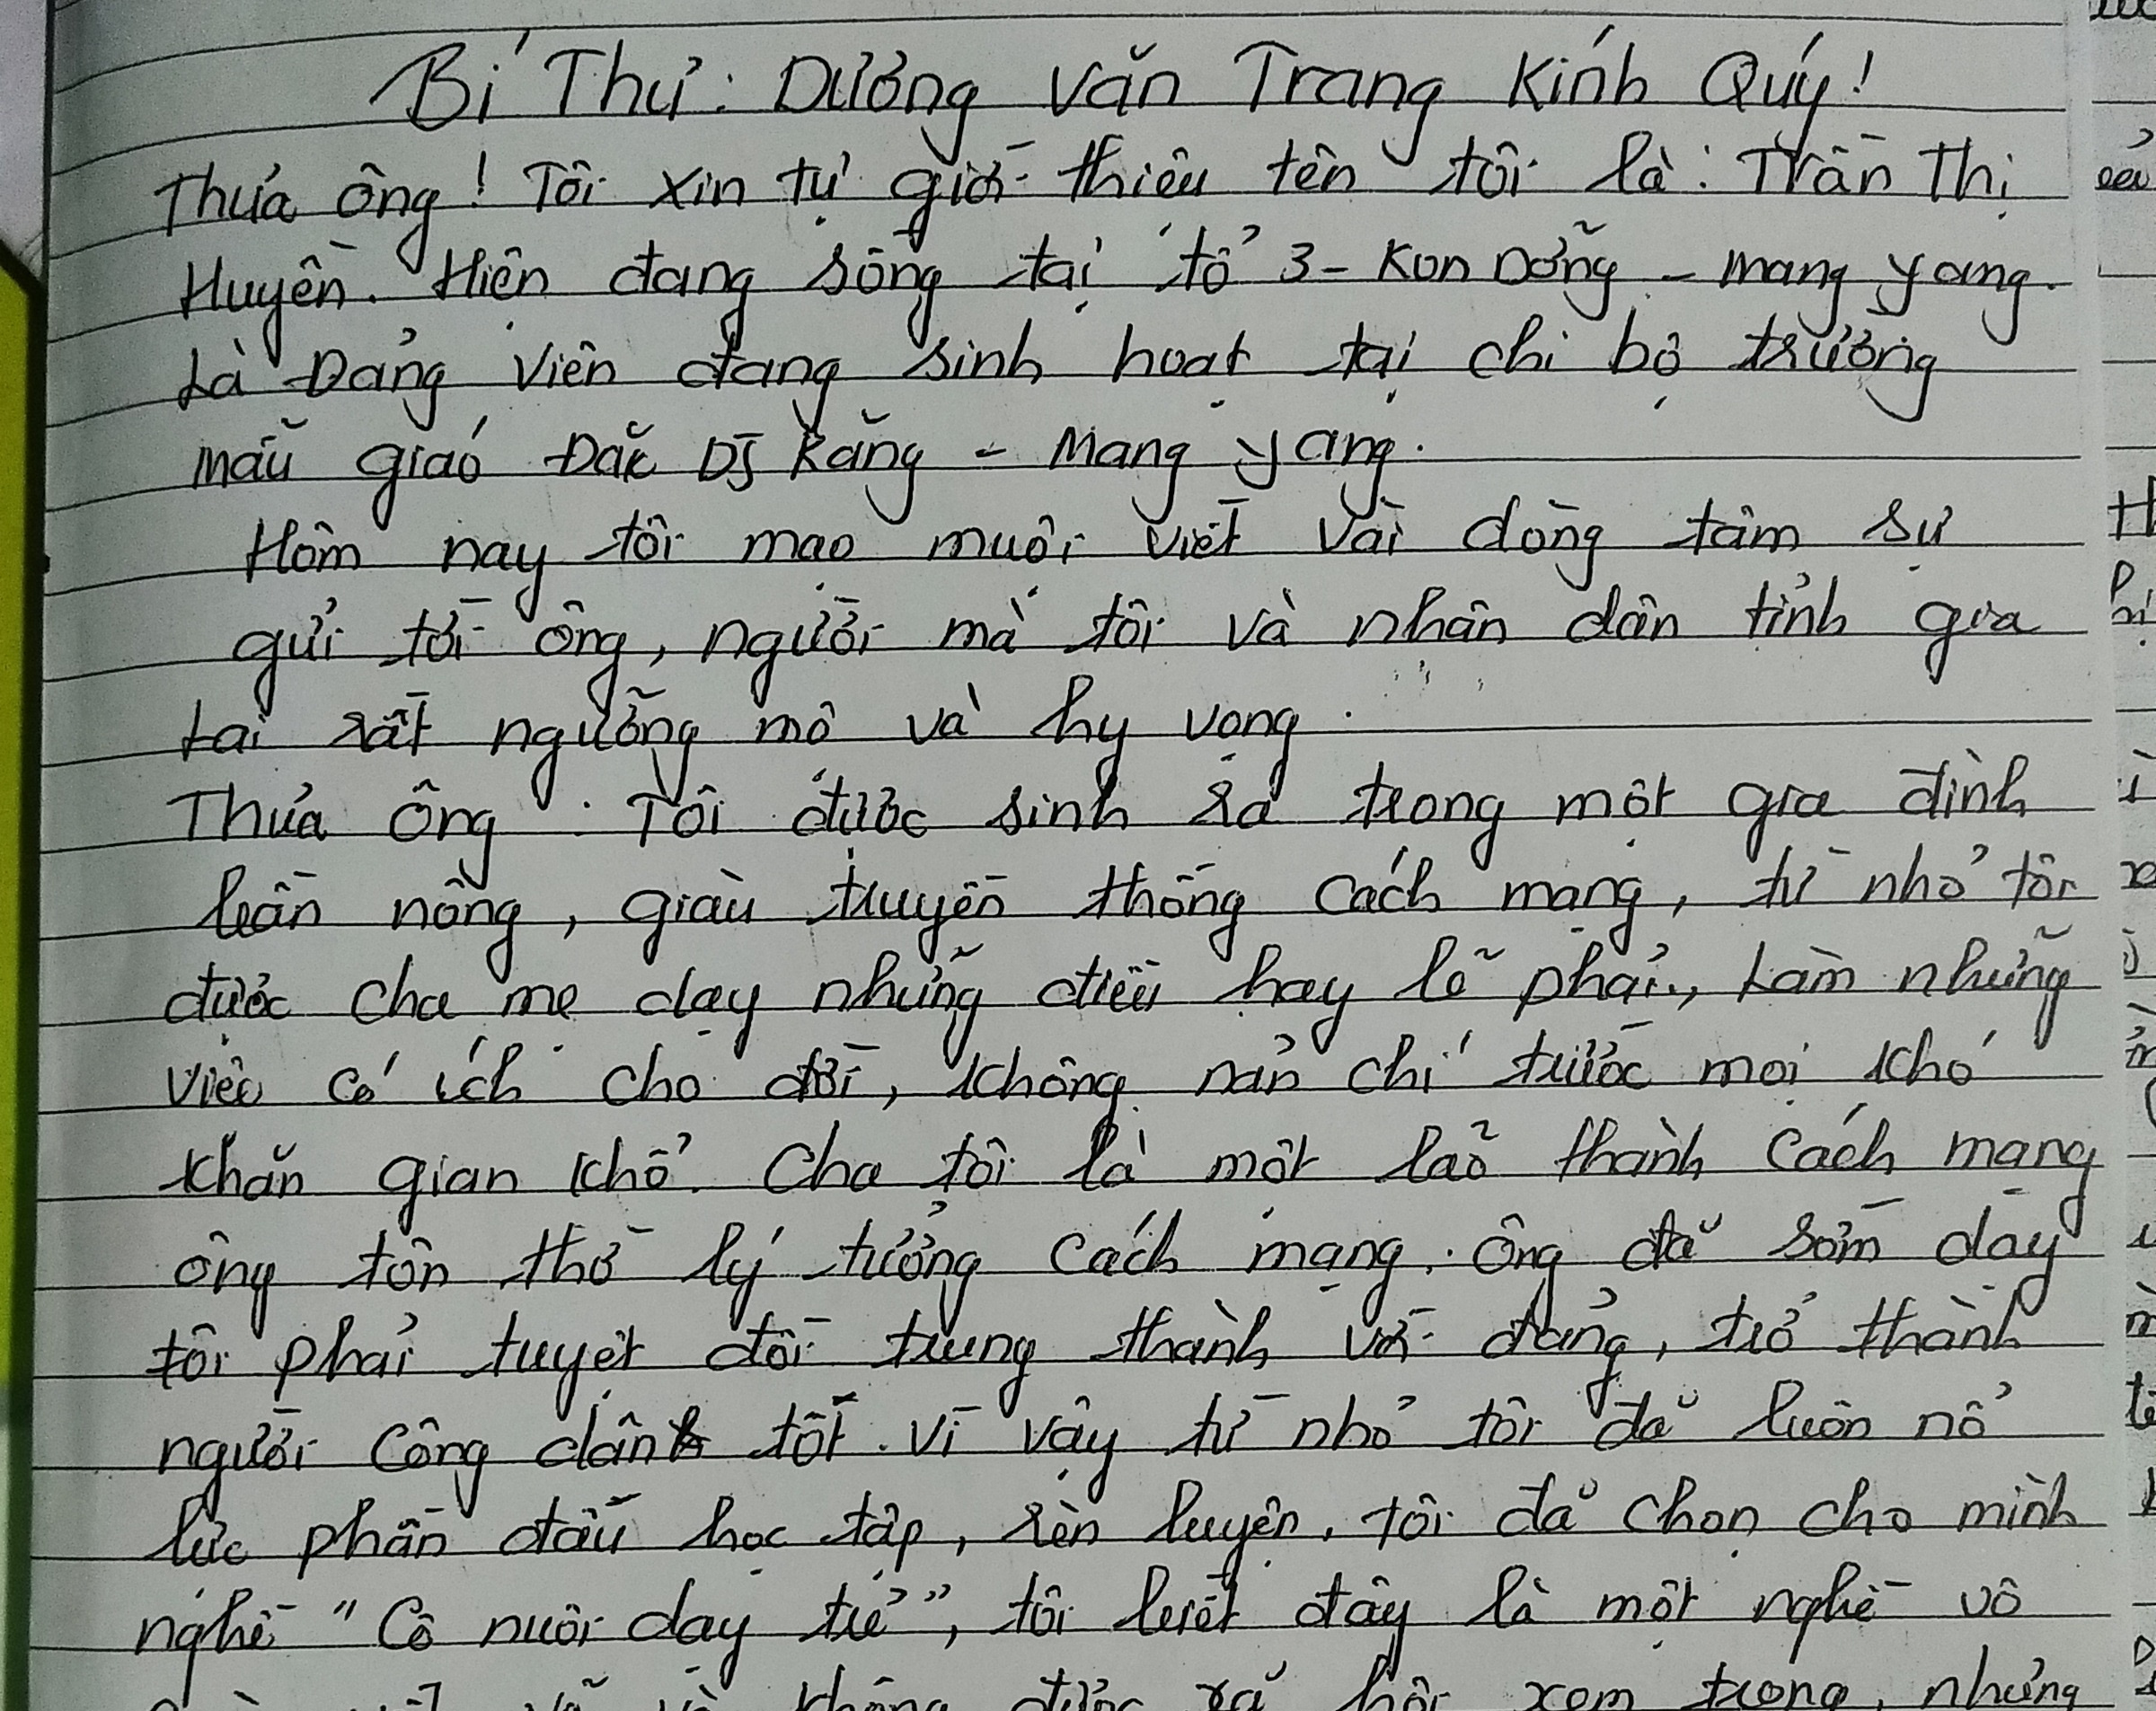 Bí Thư: Dương Văn Trang Kính Quý!
Thưa ông! Tôi xin tự giới thiệu tên tôi là: Trần Thị
Huyền. Hiện đang sống tại tổ 3 - Kon Dỡng - Mang Yang.
Là Đảng viên đang sinh hoạt tại chi bộ trường
mẫu giáo Đăk DJ Răng - Mang Yang.
Hôm nay tôi mạo muội viết vài dòng tâm sự
gửi tới ông, người mà tôi và nhân dân tỉnh gia
Lai rất ngưỡng mộ và hy vọng.
Thưa ông: Tôi được sinh ra trong một gia đình
thuần nông, giàu truyền thống cách mạng, từ nhỏ tôi
được cha mẹ dạy những điều hay lẽ phải, Làm những
việc có ích cho đời, không nản chí trước mọi khó
khăn gian khổ. Cha tôi là một lão thành cách mạng
ông tôn thờ lý tưởng cách mạng. Ông đã sớm dạy
tôi phải tuyệt đối trung thành với đảng, trở thành
người công dân tốt. Vì vậy từ nhỏ tôi đã luôn nổ
lực phấn đấu học tập, rèn luyện, tôi đã chọn cho mình
nghề "Cô nuôi dạy trẻ", tôi biết đây là một nghề vô
không được xã hội xem trọng, nhưng